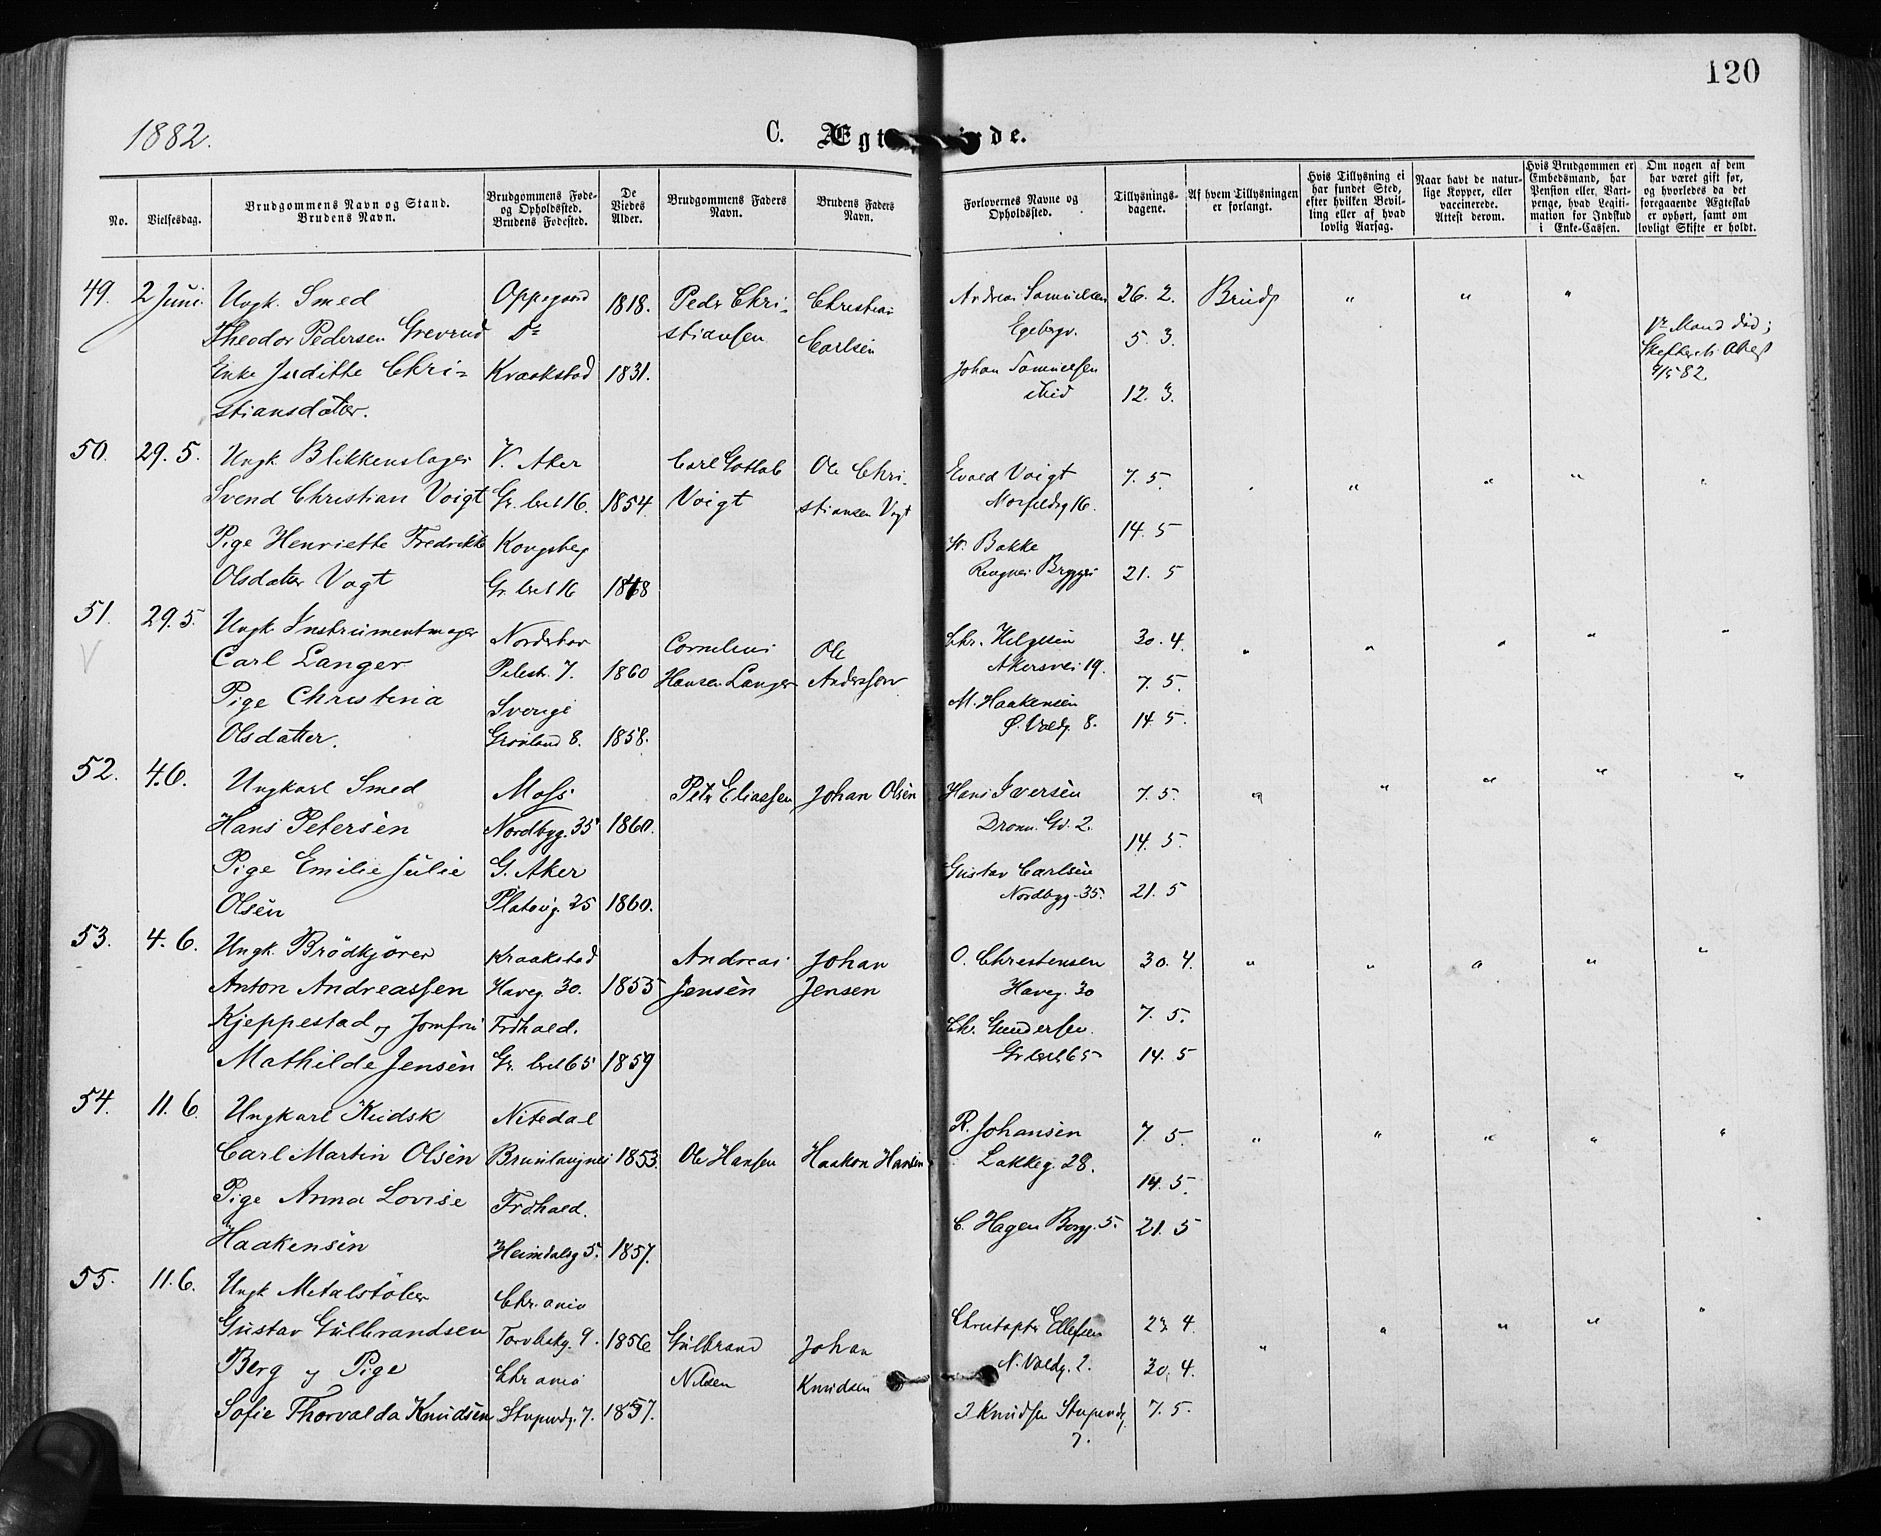 120
1882.
C. Ægt
de.
No.
Vielsesdag.
Brudgommens Navn og Stand.
Brudens Navn.
Brudgommens Føde-
og Opholdssted.
Brudens Fødested.
De
Viedes
Alder.
Brudgommens Faders
Navn.
Brudens Faders
Navn.
Forlovernes Navne og
Opholdssted.
Tillysnings-
dagene.
Af hvem Tillysningen
er forlangt.
Hvis Tillysning ei
har fundet Sted,
efter hvilken Bevil-
ling eller af hvad
lovlig Aarsag.
Naar havt de natur-
lige Kopper, eller
vaccinerede.
Attest derom.
Hvis Brudgommen er
Embedsmand, har
Pension eller Vart-
penge, hvad Legiti-
mation for Indskud
i Enke-Cassen.
Om nogen af dem
har været gift før,
og hvorledes da det
foregaaende Ægteskab
er ophørt, samt om
lovligt Skifte er holdt.
49. 2 Juni. Ungk. Smed Oppegaard 1818. Peder Chri- Christian Andreas Samuelsen 26. 2. Brudg " " "
Theodor Pedersen Grevrud D= stiansen Carlsen Egebergv. 5. 3. Mand død;
Enke Juditte Chri= Kraakstad 1831. Johan Samuelsen Attest
stiansdatter. ibid 12. 3. 82.
50. 29. 5. Ungk. Blikkenslager V. Aker Carl Gotlob Ole Chri- Evald Voigt 7. 5. " " " " "
Svend Christian Voigt Gr. leret 16. 1854. Voigt stiansen Vogt 16.
Pige Henriette Fredrikke Kongsberg Bakke 14. 5
Olsdatter Vogt Gr. leret 16 18 8 21. 5
51. 29. 5. Ungk. Instrumentmager Cornelius Ole Chr. Helgesen 30. 4. " " " " "
Carl Langer Pilestr. 7. 1860 Hansen Langer Anderssøn Akersvei 19.
Pige Christina Sverige M. Haakensen 7. 5.
Olsdatter. Grønland 8. 1858. Ø. Voldg. 8. 14. 5.
52. 4.6. Ungkarl Smed Moss Peter Eliassen Johan Olsen Hans Iversen 7. 5. " " " " "
Hans Petersen Nordbyg. 35 1860. Dronn. Gd. 2.
Pige Emilie Julie G. Aker 14. 5. Gustav Carlsen
Olsen Platoug. 25 1860. Nordbyg. 35. 21. 5
53. 4. 6. Ungk. Brødkjører Kraakstad Andreas Johan O. Christensen 30. 4. " " " " "
Anton Andreassen Haveg. 30. 1855 Jensen Jensen Haveg. 30
Kjeppestad og Jomfru Frdhald. Chr. Gundersen. 7. 5.
Mathilde Jensen Gr. leret 65 1859 Gr leret 65 14. 5
54. 11. 6. Ungkarl Kudsk Nitedal R. Johansen 7 5. " " " " "
Carl Martin Olsen 1853. Ole Hansen Haakon Hansen Lakkeg. 28.
Pige Anna Lovise Frdhald. 14. 5.
Haakensen Heimdalsg 5. 1857. C. Hagen Borgg. 5. 21. 5
55. 11. 6. Ungk Metalstøber Chr.ania Christopher Ellefsen 23 4. " " " " "
Gustav Gulbrandsen Torvbakg. 9. 1856 Gulbrand Johan N. Voldg. 2.
Berg og Pige Chr ania Nilsen Knudsen 30. 4.
Sofie Thorvalda Knudsen Stupendg. 7. 1857. J Knudsen Stupendg 7. 5.
7.